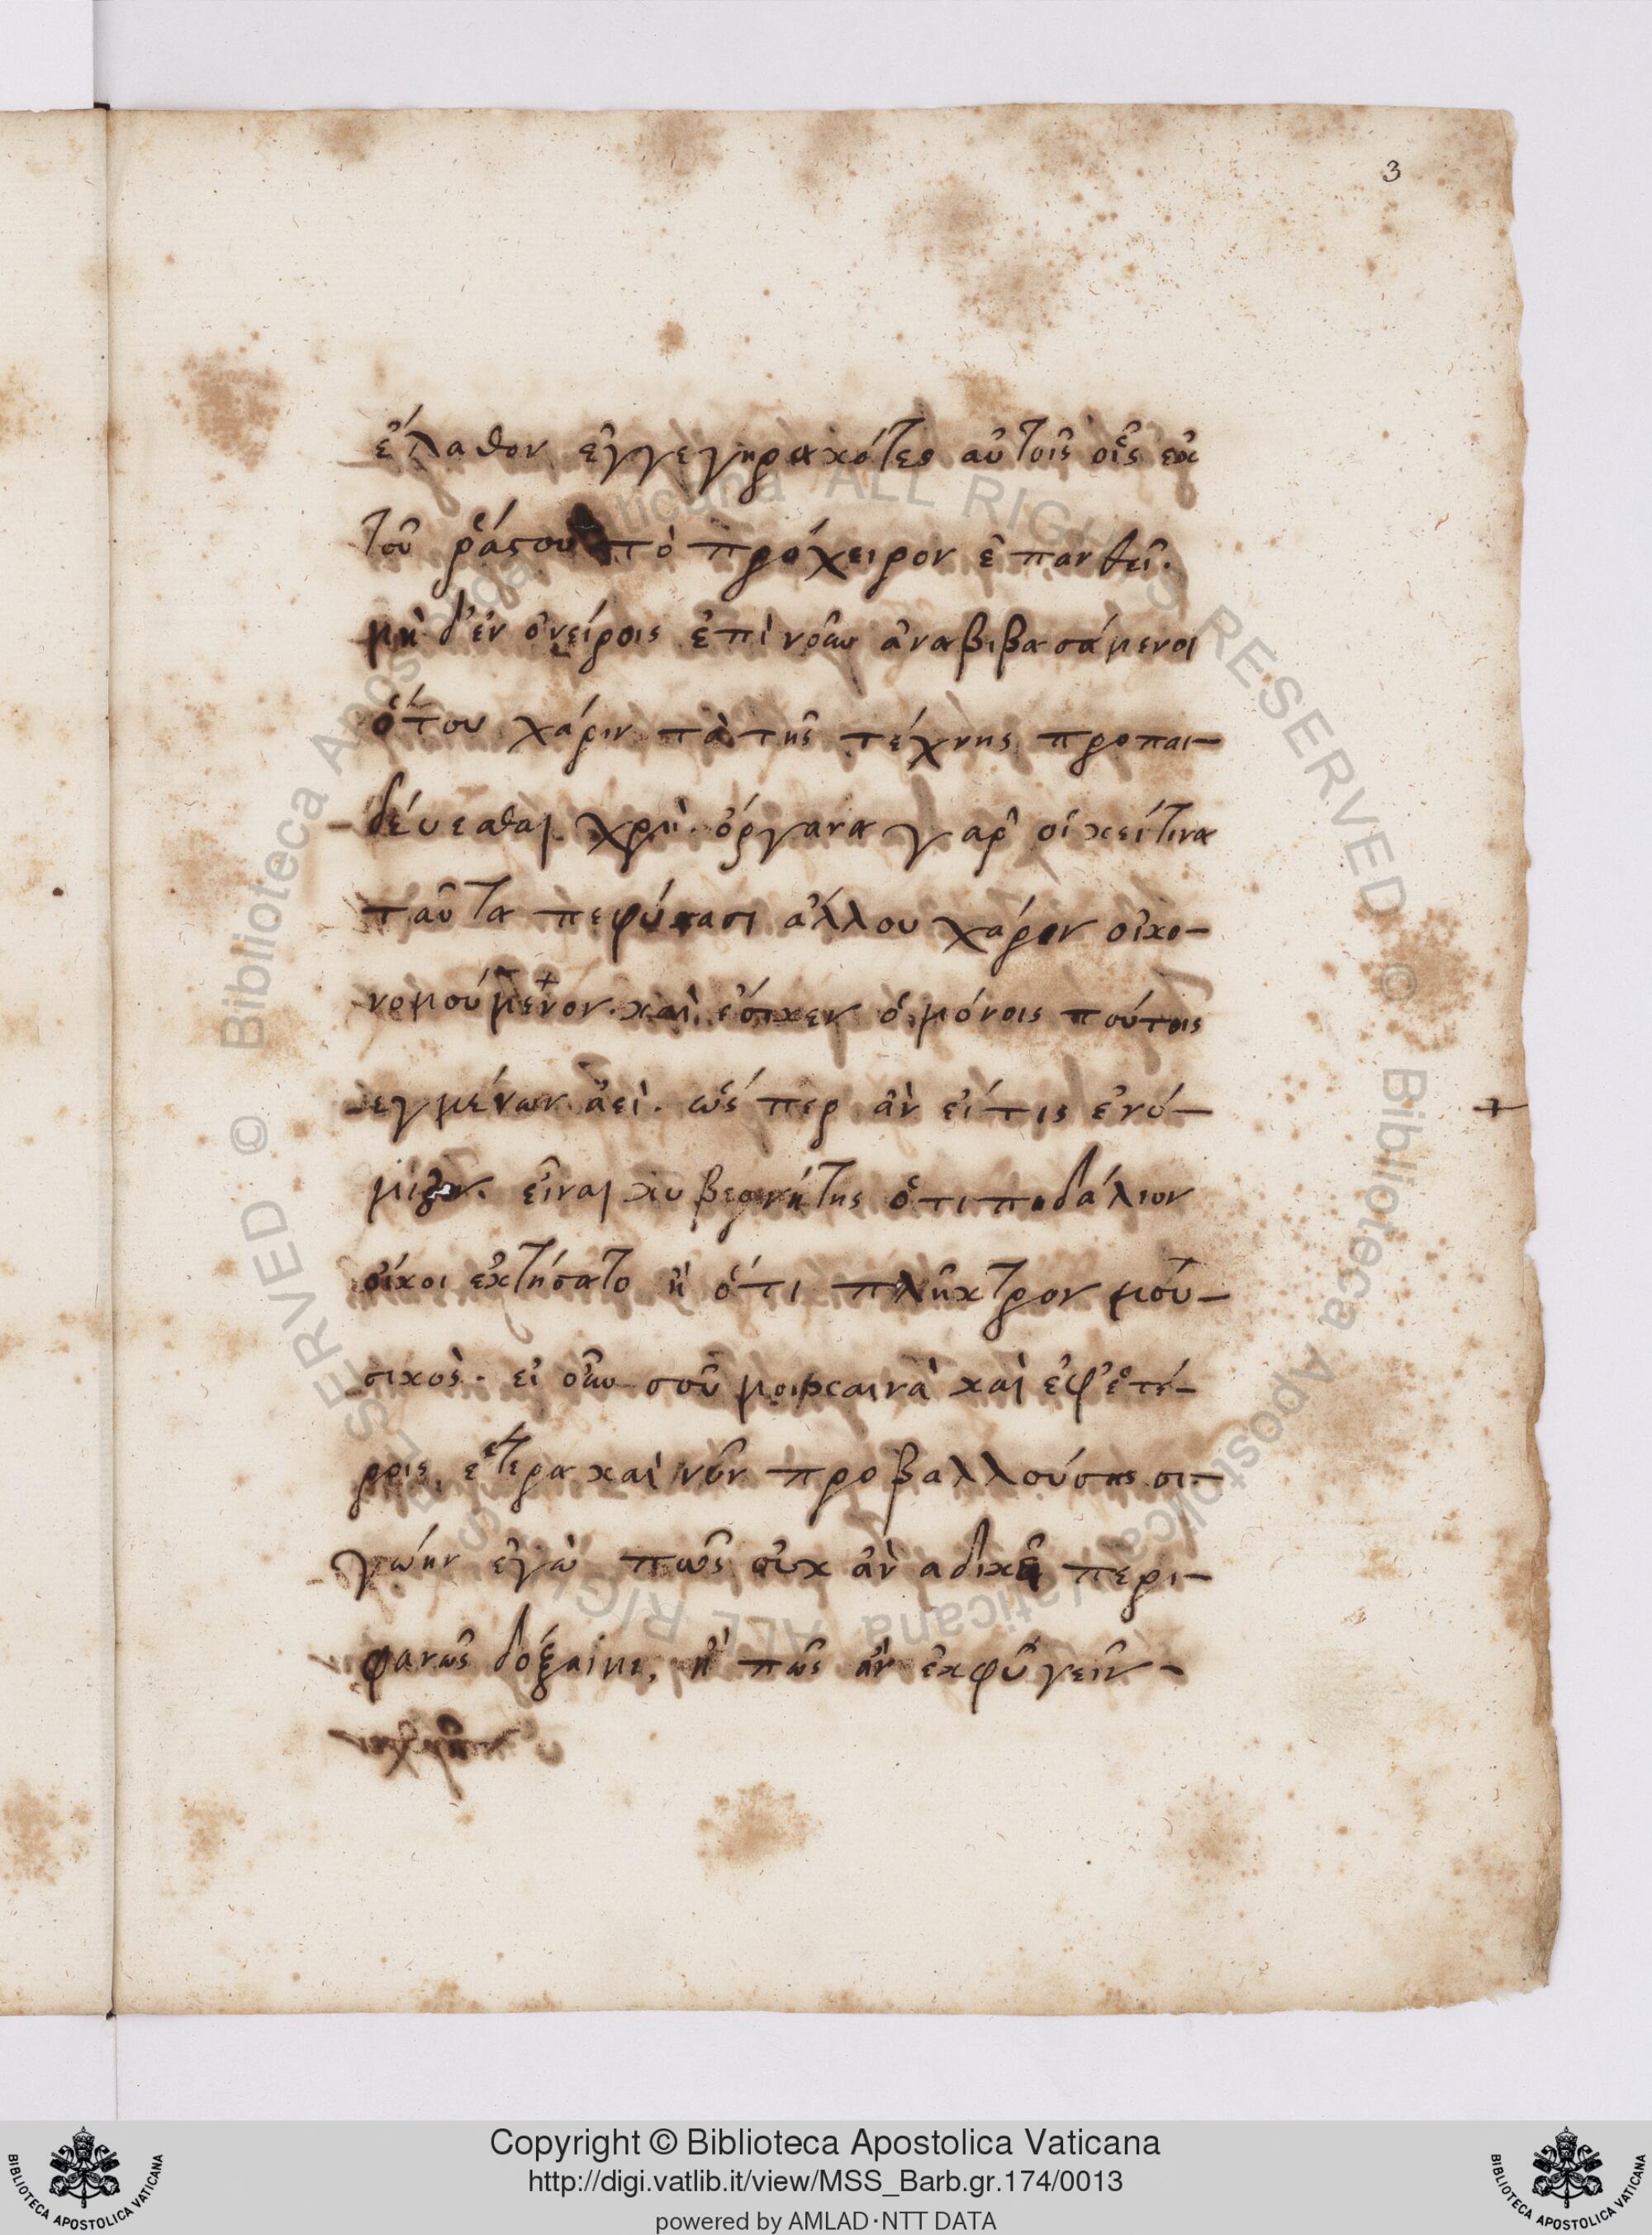 3
ἔλαθον ἐγγεγηρακότες αὐτοῖς οἷς ἐκ
τοῦ ῥάσου τὸ πρόχειρον ἐπανθεῖ.
μὴ δ' ἐν ὀνείροις ἐπὶ νοῦν ἀναβιβασάμενοι
ὅτου χάριν τὰ τῆς τέχνης προπαι-
δέυεσθαι χρὴ· ὄργανα γαρ οἱκεί τινα
ταῦτα πεφύκασι ἀλλου χάριν οἰκο-
νομούμενον· καὶ ἔοικεν ὁ μόνοις τούτοις
εγμένων ἀεὶ. ὡς περ ἀν εἴ τις ἐνό-
μιζεν. εἶναι κυβερνήτης ὅτι πηδάλιον
οἴκοι ἐκτήσατο ἢ ὅτι πλῆκτρον μού-
σικὸς. εἰ οὖν σοῦ μοι καινὰ καὶ ἐφ' ἑτέ-
ροις ἕτερα καὶ νῦν προβαλλούσης σι-
γώην ἐγὼ πῶς οὐκ ἀν αδικεῖ περι-
φανῶς δοξαίην, ἢ πῶς ἀν ἐκφῦγεῖν-
Copyright © Biblioteca Apostolica Vaticana
http://digi.vatlib.it/view/MSS_Barb.gr.174/0013
powered by AMLAD·NTT DATA
BIBLIOTECA APOSTOLICA VATICANA
BIBLIOTECA APOSTOLICA VATICANA
© Biblioteca Apostolica Vaticana ALL RIGHTS RESERVED © Biblioteca Apostolica Vaticana ALL RIGHTS RESERVED